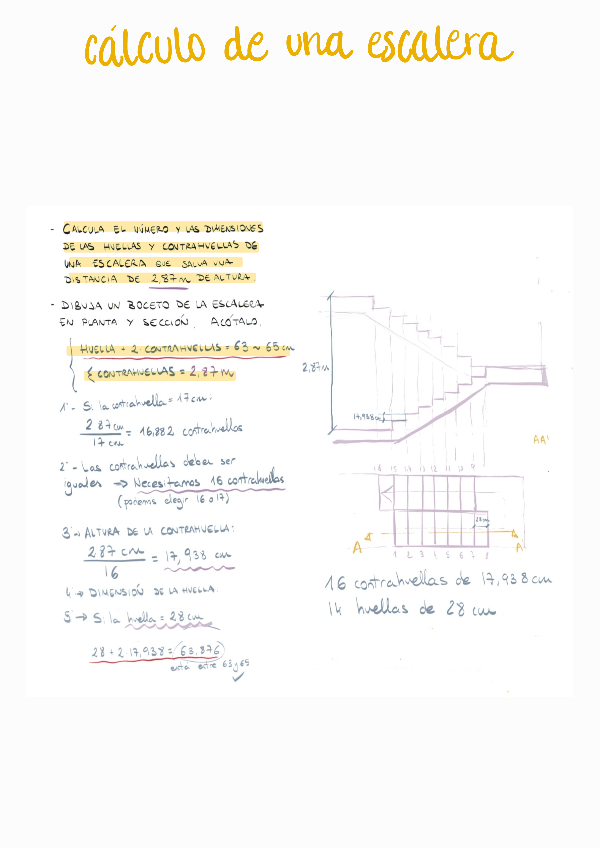 cálculo de una escalera
- CALCULA EL NÚMERO Y LAS DIMENSIONES
DE LAS HUELLAS Y CONTRAHUELLAS DE
UNA ESCALERA QUE SALVA UNA
DISTANCIA DE 2,87m DE ALTURA.
- DIBUJA UN BOCETO DE LA ESCALERA
EN PLANTA Y SECCIÓN. ACÓTALO.
HUELLA + 2 CONTRAHUELLAS = 63 ~ 65 cm
CONTRAHUELLAS = 2,87m
1º - Si la contrahuella = 17cm:
287cm
17 cm
= 16,882 contrahuellas
2º - Las contrahuellas deben ser
iguales → Necesitamos 16 contrahuellas
(podemos elegir 16 o 17)
3º → ALTURA DE LA CONTRAHUELLA:
287 cm
16
= 17,938 cm
4º → DIMENSIÓN DE LA HUELLA.
5º → Si la huella = 28cm
28 + 2·17,938 = 63,876
está entre 63 y 65
2,87m
17,938cm
AA'
16 15 14 13 12 11 10 9
28cm
A
A'
1 2 3 4 5 6 7 8
16 contrahuellas de 17,938cm
14 huellas de 28 cm